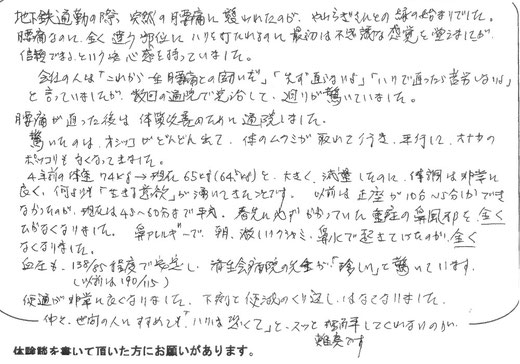 地下鉄通勤の際、突然の腰痛に襲われたのが、やわらぎさんとの縁の始まりでした。
腰痛なのに、全く違う部位にハリを打たれるのに最初は不思議な感覚を覚えましたが、
信頼できるという安心感を持っていました。
会社の人は「これから一生腰痛との闘いだ」「先ず直らないよ」「ハリで直ったら苦労しないよ」
と言っていましたが、数回の通院で完治して、周りが驚いていました。
腰痛が直った後は体質改善のために通院しました。
驚いたのは、オシッコがどんどん出て、体のムクミが取れて行き、平行して、オナカの
ポッコリもなくなってきました。
4年前の体重74kg→現在65kg(64.5kg)と、大きく減量したのに、体調は非常に
良く、何よりも「生きる意欲」が湧いてきたことです。以前は正座が10分~15分しかでき
なかったが、現在は45~60分まで平気。春先に必ずかかっていた重症の鼻風邪を全く
ひかなくなりました。鼻アレルギーで、朝、激しいクシャミ、鼻水で起きていたのが、全く
なくなりました。
血圧も、138/85程度で安定し、済生会病院の先生が「珍しい」と驚いています。
(以前は190/115)
便通が非常に良くなりました。下痢と便秘のくり返しはなくなりました。
仲々、世間の人にすすめても「ハリは恐くて」と、スッと
してくれないのが、
難点です
体験談を書いて頂いた方にお願いがあります。